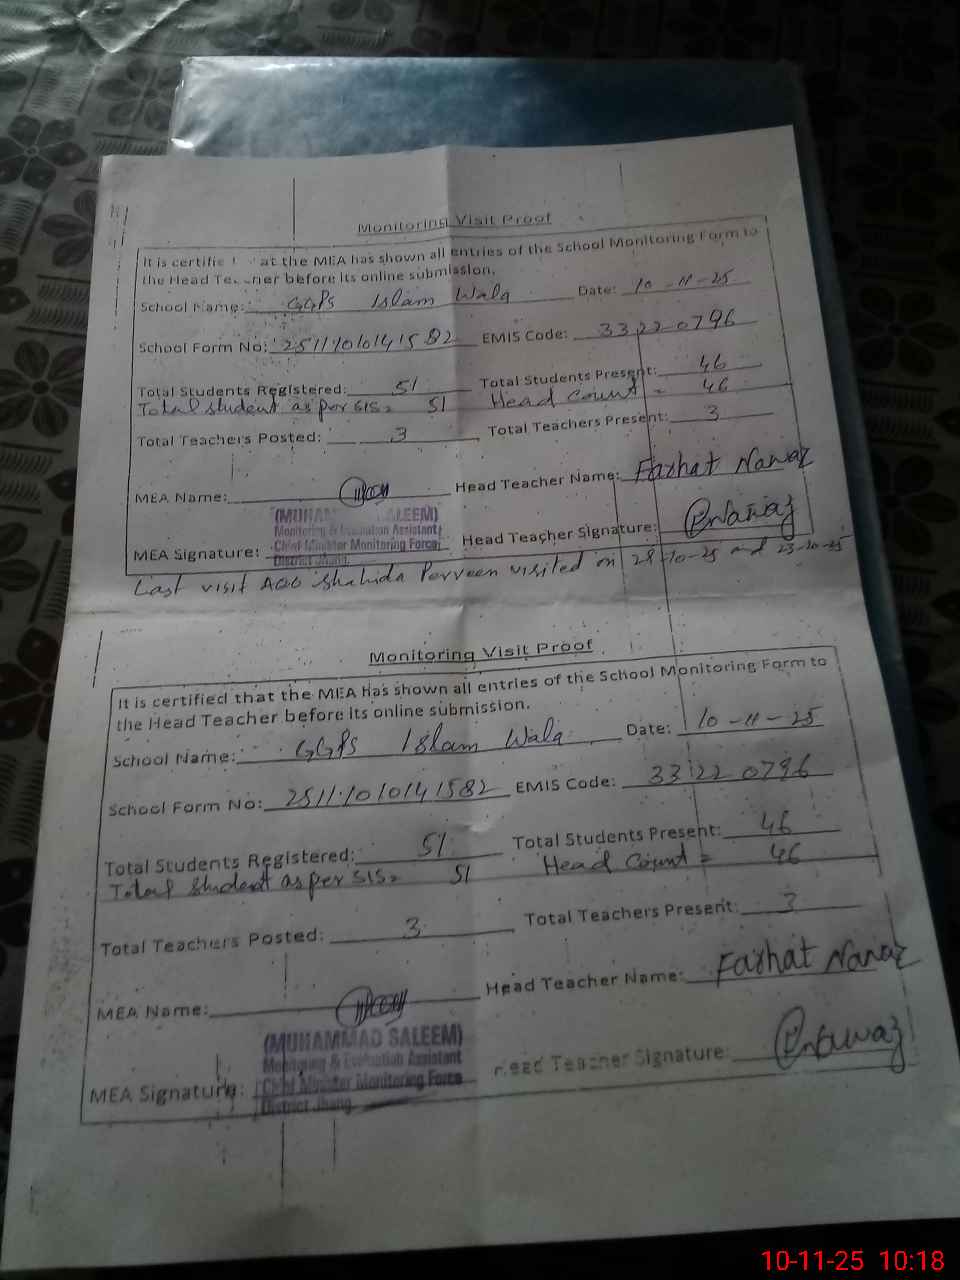 Monitoring Visit Proof
It is certifie at the MEA has shown all entries of the School Monitoring Form to
the Head Te ner before its online submission.
School Name: GGPS Islam Wala Date: 10-11-25
School Form No: 25111010141582 EMIS Code: 33220796
Total Students Registered: 51 Total Students Present: 46
Total student as per SIS= 51 Head Count = 46
Total Teachers Posted: 3 Total Teachers Present: 3
MEA Name: Head Teacher Name: Farhat Nawaz
(MUHAM ALEEM)
Monitoring & Evaluation Assistant
MEA Signature: Chief Minister Monitoring Force Head Teacher Signature:
District Jhang
Last visit AEO Shahida Parveen visited on 28-10-25 and 23-10-25
Monitoring Visit Proof
It is certified that the MEA has shown all entries of the School Monitoring Form to
the Head Teacher before its online submission.
School Name: GGPS Islam Wala Date: 10-11-25
School Form No: 25111010141582 EMIS Code: 33220796
Total Students Registered: 51 Total Students Present: 46
Total Student as per SIS= 51 Head Count = 46
Total Teachers Posted: 3 Total Teachers Present: 3
MEA Name: Head Teacher Name: Farhat Nawaz
(MUHAMMAD SALEEM)
Monitoring & Evaluation Assistant
MEA Signature: Chief Minister Monitoring Force Head Teacher Signature:
District Jhang
10-11-25 10:18